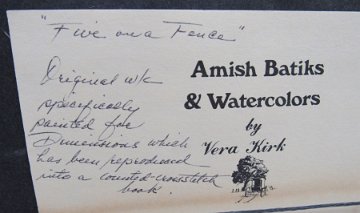 "Five on a Fence"
Original wk
specifically
painted for
Dimensions which
has been reproduced
into a counted crosstitch
book.
Amish Batiks
& Watercolors
by
Vera Kirk